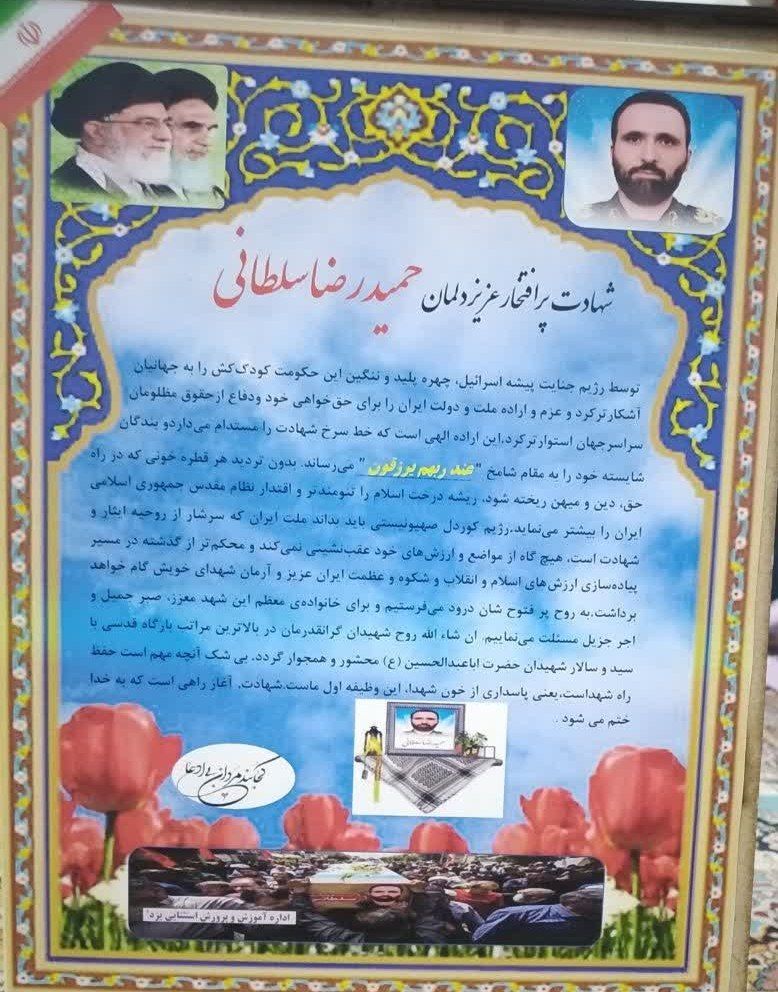 شهادت پرافتخار عزیز دلمان حمیدرضا سلطانی
توسط رژیم جنایت پیشه اسرائیل، چهره پلید و ننگین این حکومت کودک‌کش را به جهانیان
آشکارتر کرد و عزم و اراده ملت و دولت ایران را برای حق‌خواهی خود ودفاع از حقوق مظلومان
سراسر جهان استوارتر کرد.این اراده الهی است که خط سرخ شهادت را مستدام می‌دارد و بندگان
شایسته خود را به مقام شامخ "عند ربهم یرزقون" می‌رساند. بدون تردید هر قطره خونی که در راه
حق، دین و میهن ریخته شود، ریشه درخت اسلام را تنومندتر و اقتدار نظام مقدس جمهوری اسلامی
ایران را بیشتر می‌نماید.رژیم کوردل صهیونیستی باید بداند ملت ایران که سرشار از روحیه ایثار و
شهادت است، هیچ گاه از مواضع و ارزش‌های خود عقب‌نشینی نمی‌کند و محکم‌تر از گذشته در مسیر
پیاده‌سازی ارزش‌های اسلام و انقلاب و شکوه و عظمت ایران عزیز و آرمان شهدای خویش گام خواهد
برداشت.به روح پر فتوح شان درود می‌فرستیم و برای خانواده‌ی معظم این شهد معزز، صبر جمیل و
اجر جزیل مسئلت می‌نماییم. ان شاء الله روح شهیدان گرانقدرمان در بالاترین مراتب بارگاه قدسی با
سید و سالار شهیدان حضرت اباعبدالحسین (ع) محشور و همجوار گردد. بی شک آنچه مهم است حفظ
راه شهداست،یعنی پاسداری از خون شهدا. این وظیفه اول ماست.شهادت، آغاز راهی است که به خدا
ختم می شود .
حمیدرضا سلطانی
کجایند مردان بی ادعا
اداره آموزش و پرورش استثنایی یزد